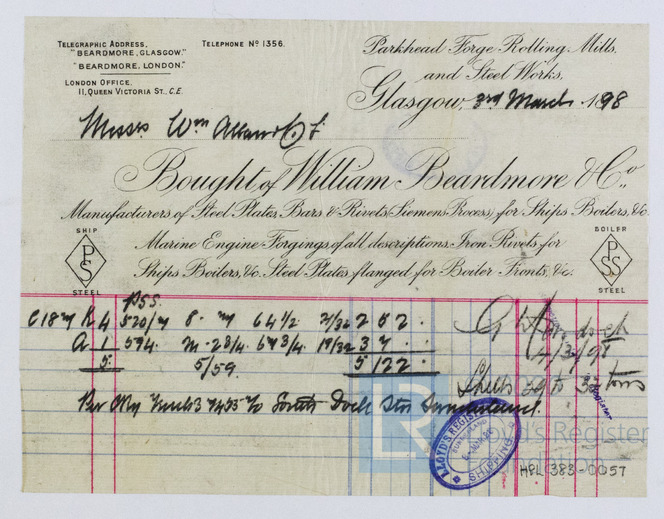 TELEGRAPHIC ADDRESS,
"BEARDMORE, GLASGOW."
"BEARDMORE, LONDON."
TELEPHONE Nº 1356.
LONDON OFFICE,
11, QUEEN VICTORIA ST., E.C.
Parkhead Forge Rolling Mills,
and Steel Works,
Glasgow, 3rd March 1898
Messrs Wm Allan & Co
Bought of William Beardmore & Co.,
Manufacturers of Steel Plates, Bars & Rivets (Siemens Process) for Ships Boilers, &c.
Marine Engine Forgings of all descriptions. Iron Rivets for
Ships Boilers, &c. Steel Plates flanged for Boiler Fronts, &c.
SHIP
PSS
STEEL
BOILER
PSS
STEEL
PSS.
4 520/ 8 64 1/2 21/32 2 0 2
1 594 2 3/4 64 3/4 19/32 3
5 5/59. 5 122
4/3/98
Steel 29 to 32 tons
Per South Dock Stn Sunderland.
LR
Lloyd's Register
Foundation
LLOYD'S REGISTER
SUNDERLAND
SHIPPING
HPL 383-0057